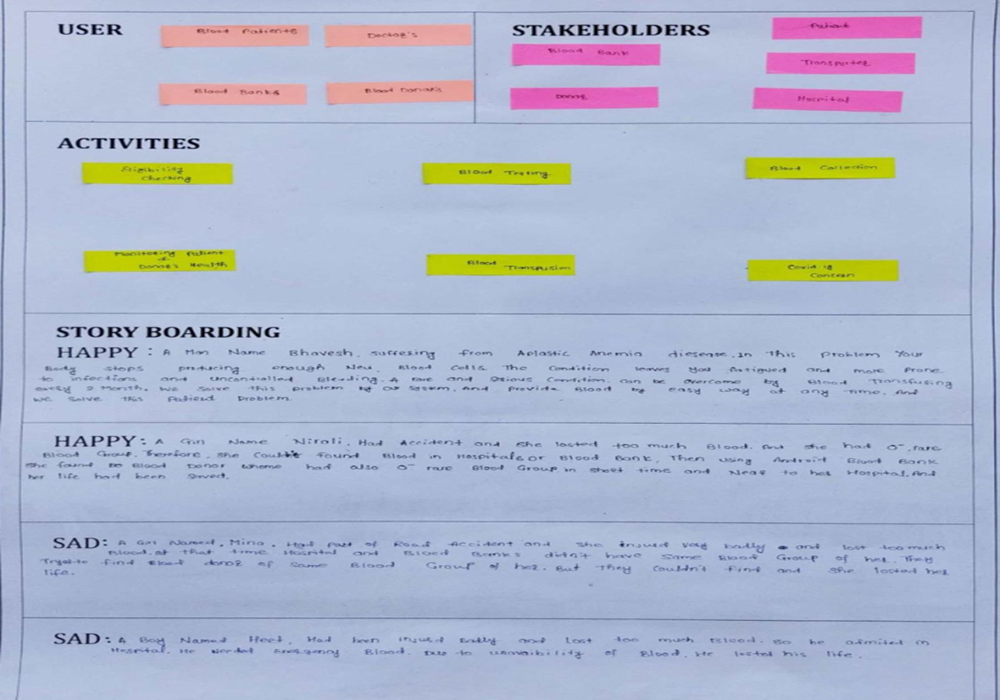 USER
Blood Patients
Doctor's
Blood Banks
Blood Donar's
STAKEHOLDERS
Patient
Blood Bank
Transporter
Donor
Hospital
ACTIVITIES
Eligibility
Checking
Blood Testing
Blood Collection
Monitoring Patient
&
Donor's Health
Blood
Transfusion
Covid 19
Concern
STORY BOARDING
HAPPY : A Man Name Bhavesh, suffering from Aplastic Anemia diesease. In This Problem Your
Body stops producing enough New Blood Cells. The Condition leaves you fatigued and more Prone
to infections and Uncontrolled Bleeding. A rare and Serious Condition can be overcome by Blood Transfusing
every 2 Month. We Solve this problem by our System. And Provide Blood by easy way at any time. And
We Solve this Patient Problem.
HAPPY : A Girl Name Nirali, Had Accident and she losted too much Blood. And she had O-, rare
Blood Group. Therefore, she Couldn't found Blood in Hospitals or Blood Bank, Then using Android Blood Bank
she found Blood Donor whome had also O- rare Blood Group in short time and Near to her Hospital. And
her life had been Saved.
SAD : A Girl Named, Mina, Had Part of Road Accident and she injured very badly and lost too much
Blood. at that time Hospital and Blood Banks didn't have Same Blood Group of her. They
Try to find Blood donor of Same Blood Group of her. But They Couldn't Find and she losted her
life.
SAD : A Boy Named Had been injured Badly and Lost too much Blood. So he admited in
Hospital. He Needed Emergency Blood. Due to unavaibility of Blood. He losted his life.